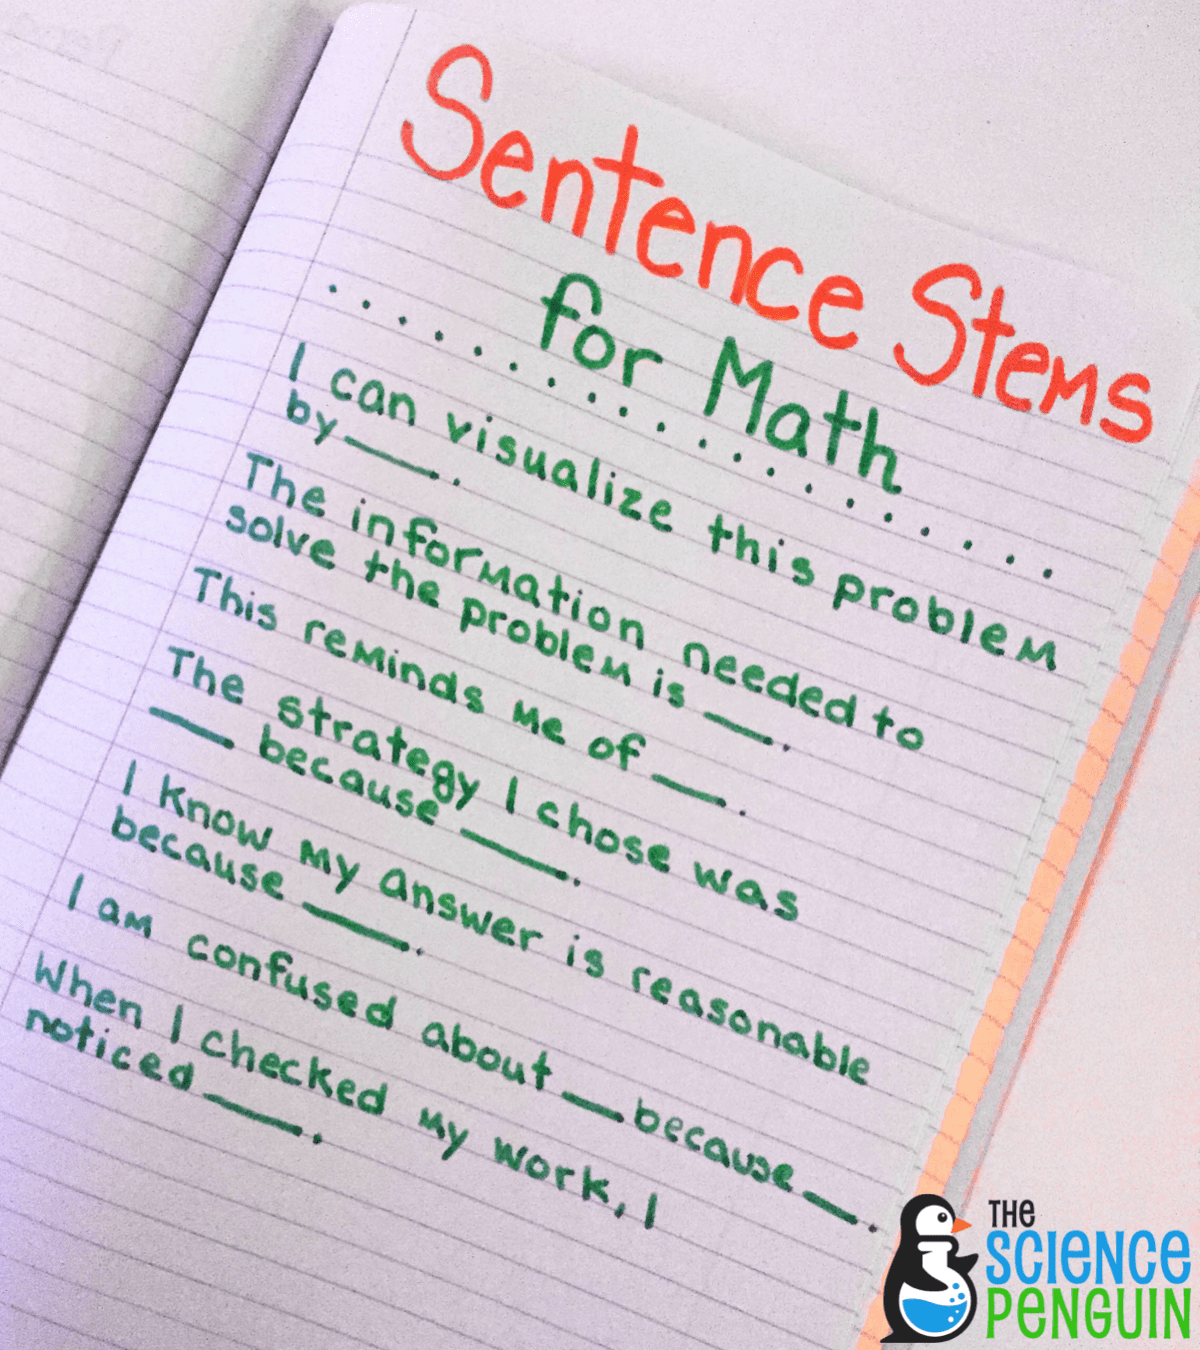 Sentence Stems
for Math
I can visualize this problem
by ____.
The information needed to
solve the problem is ____.
This reminds me of ____.
The strategy I chose was
____ because ____.
I know my answer is reasonable
because ____.
I am confused about ____ because ____.
When I checked my work, I
noticed ____.
THE
SCIENCE
PENGUIN